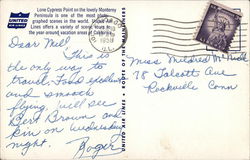 Lone Cypress Point on the lovely Monterey
Peninsula is one of the most photo-
graphed scenes in the world. United Air
Lines offers a variety of scenic tours to
the year around vacation areas of California.
UNITED
AIR LINES
UNITED AIR LINES • ROUTE OF THE MAINLINERS
1958
Dear Mel,
This is
the only way to
travel. Food excellent
and smooth
flying. Will see
Bert Brown and
kin on Wednesday
night.
Roger
Miss Mildred
78 Talcott Ave
Rockville Conn